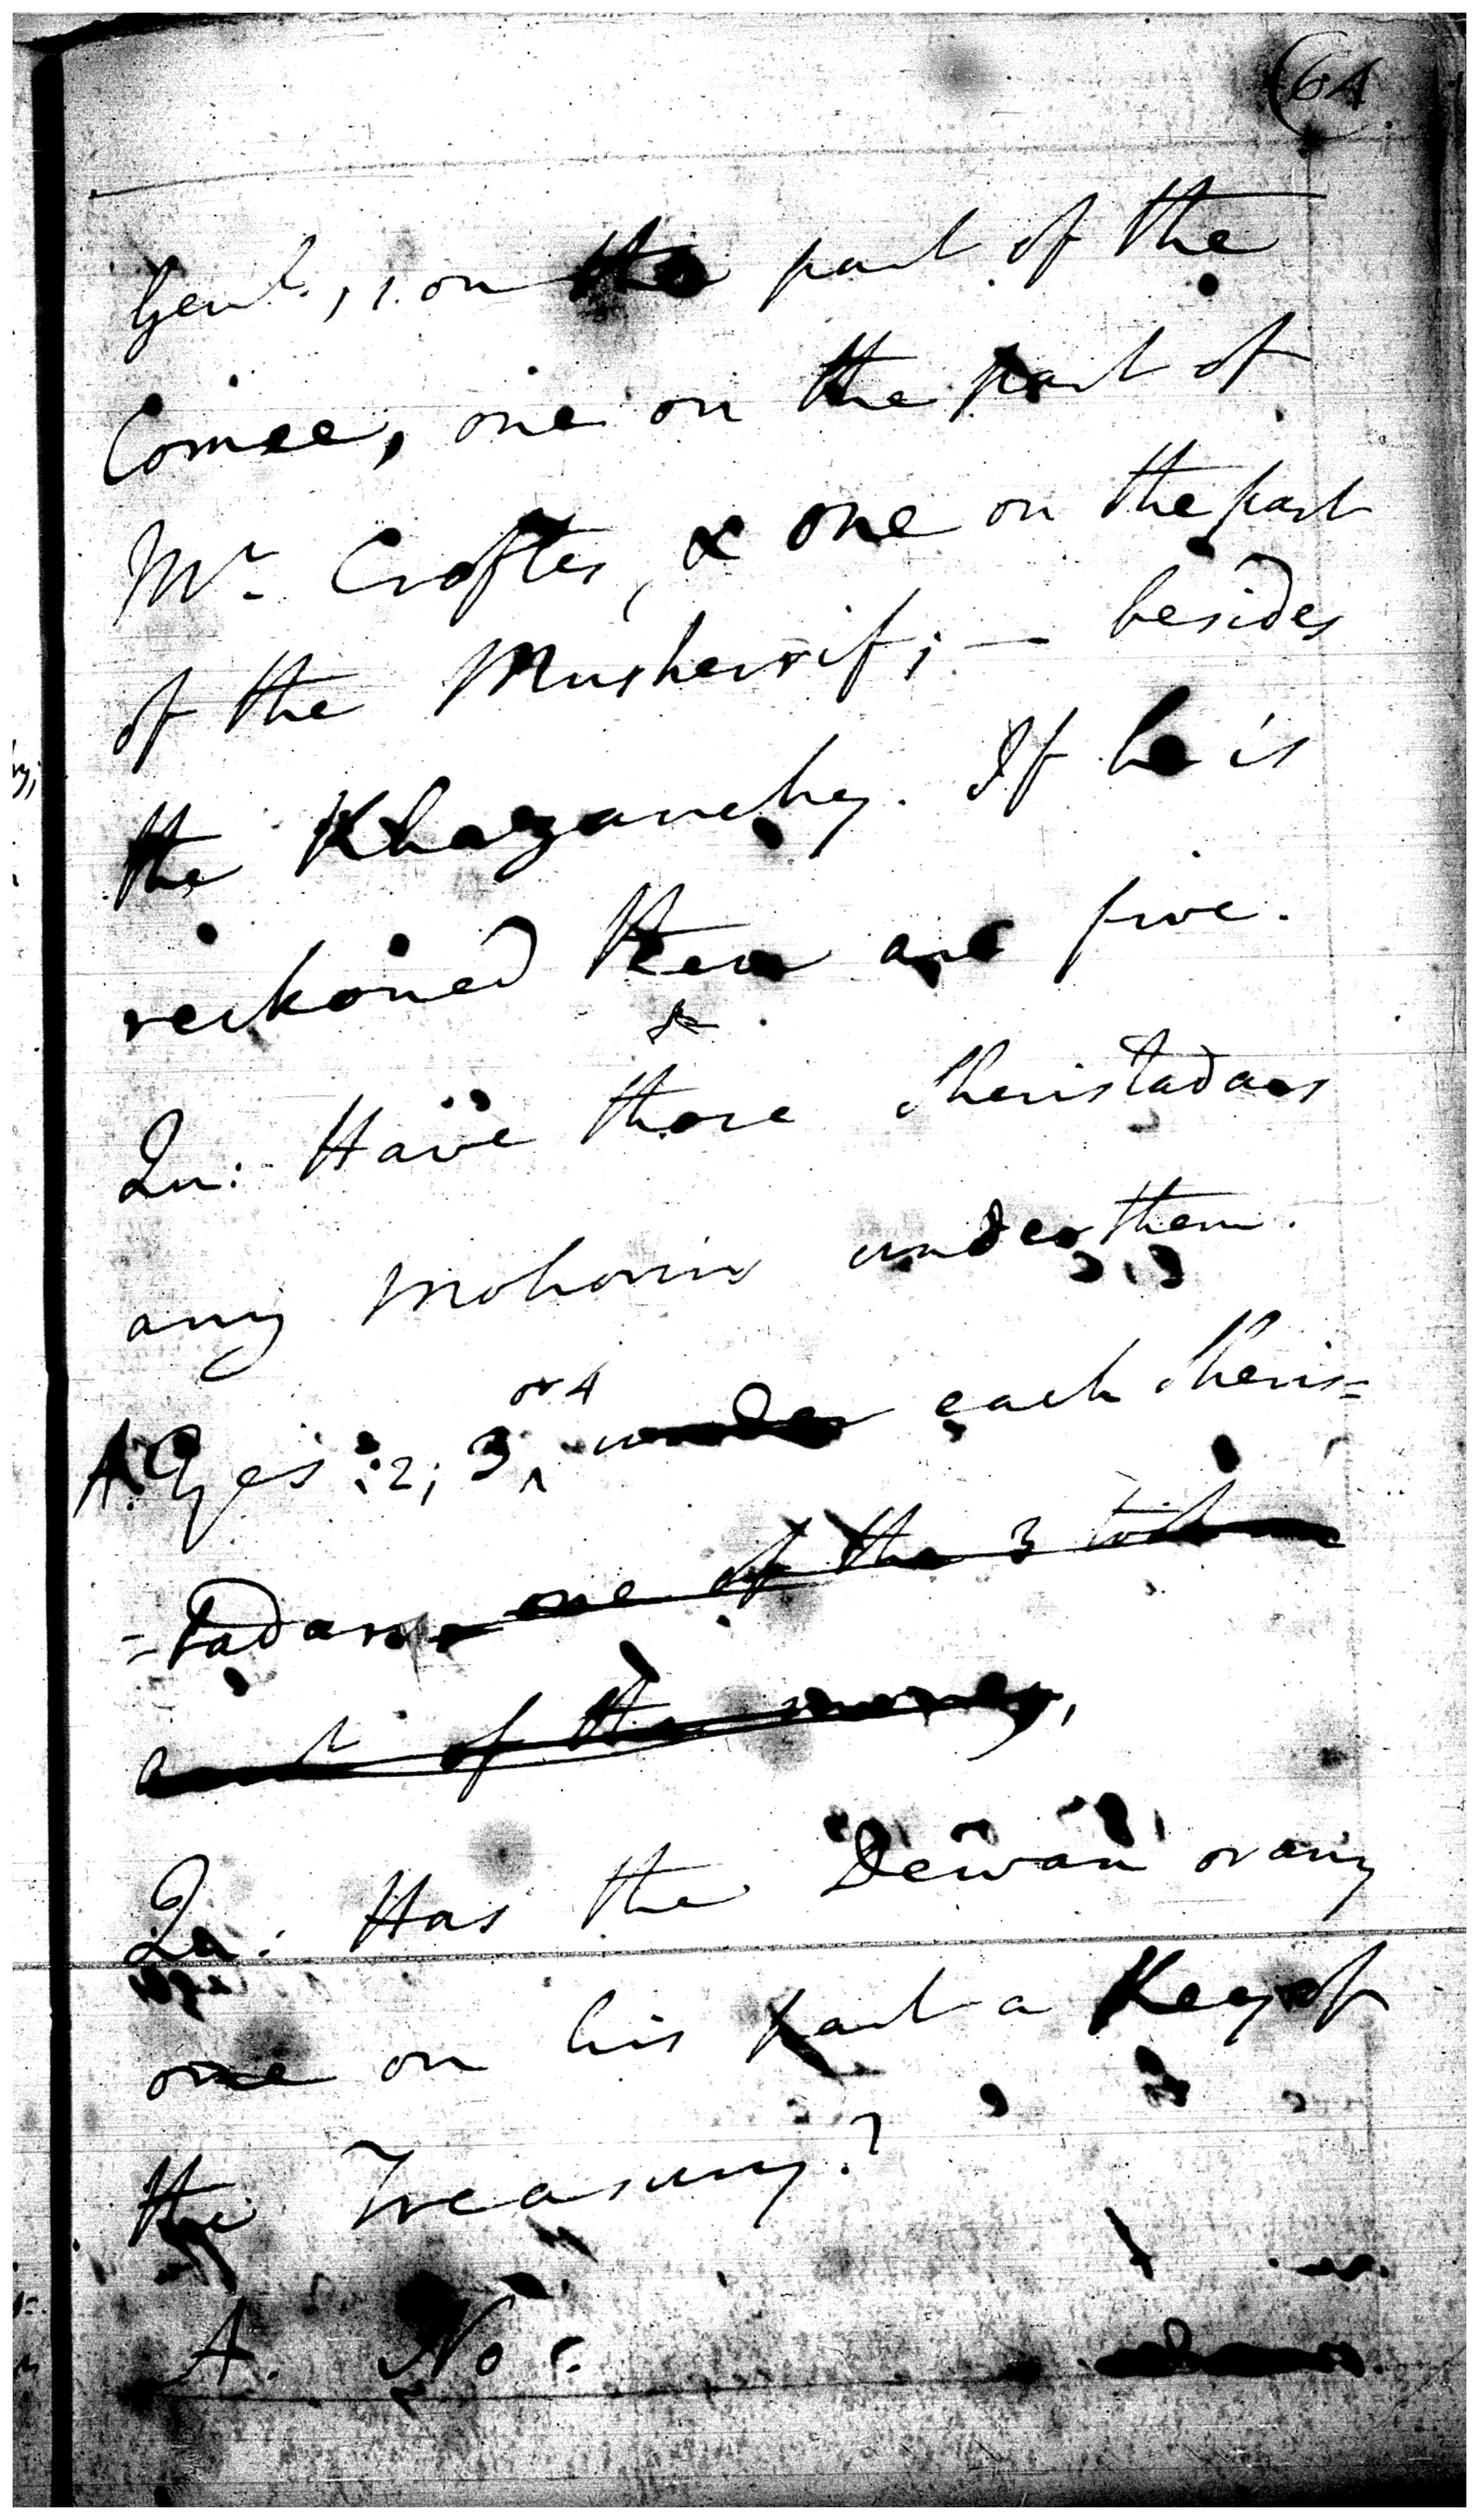 (64
Genl., 1. on the part of the
Comee, one on the part of
Mr. Croftes, & one on the part
of the Musherrif; — besides
the Khazanchy. If he is
reckoned there are five.
Qu: Have those Sheristadars
any Mohorirs under them.
A. Yes: 2, 3, or 4 under each Sheris=
=tadar one of the 3 to
of the money,
Qu: Has the Dewan or any
one on his part a Key of
the Treasury?
A. No.